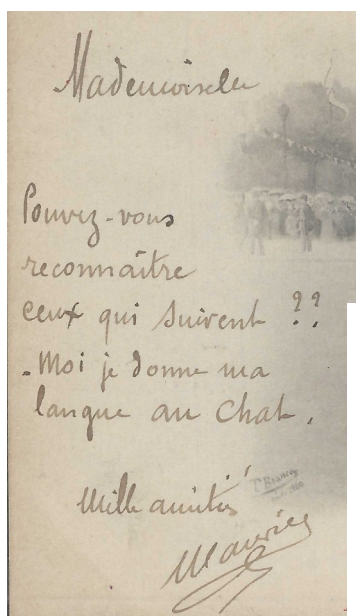 Mademoiselle
Pouvez-vous
reconnaître
ceux qui suivent ??
. Moi je donne ma
langue au Chat.
Mille amitiés
Maurice